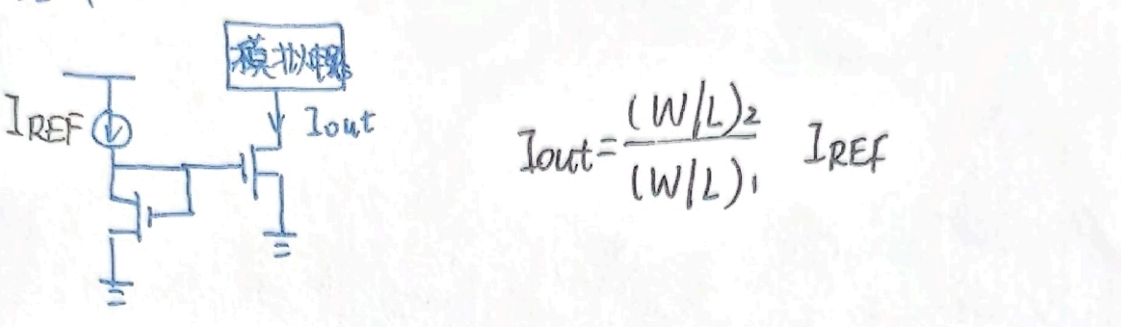 模拟电路
I_REF
Iout
Iout = (W/L)₂ / (W/L)₁ I_REf